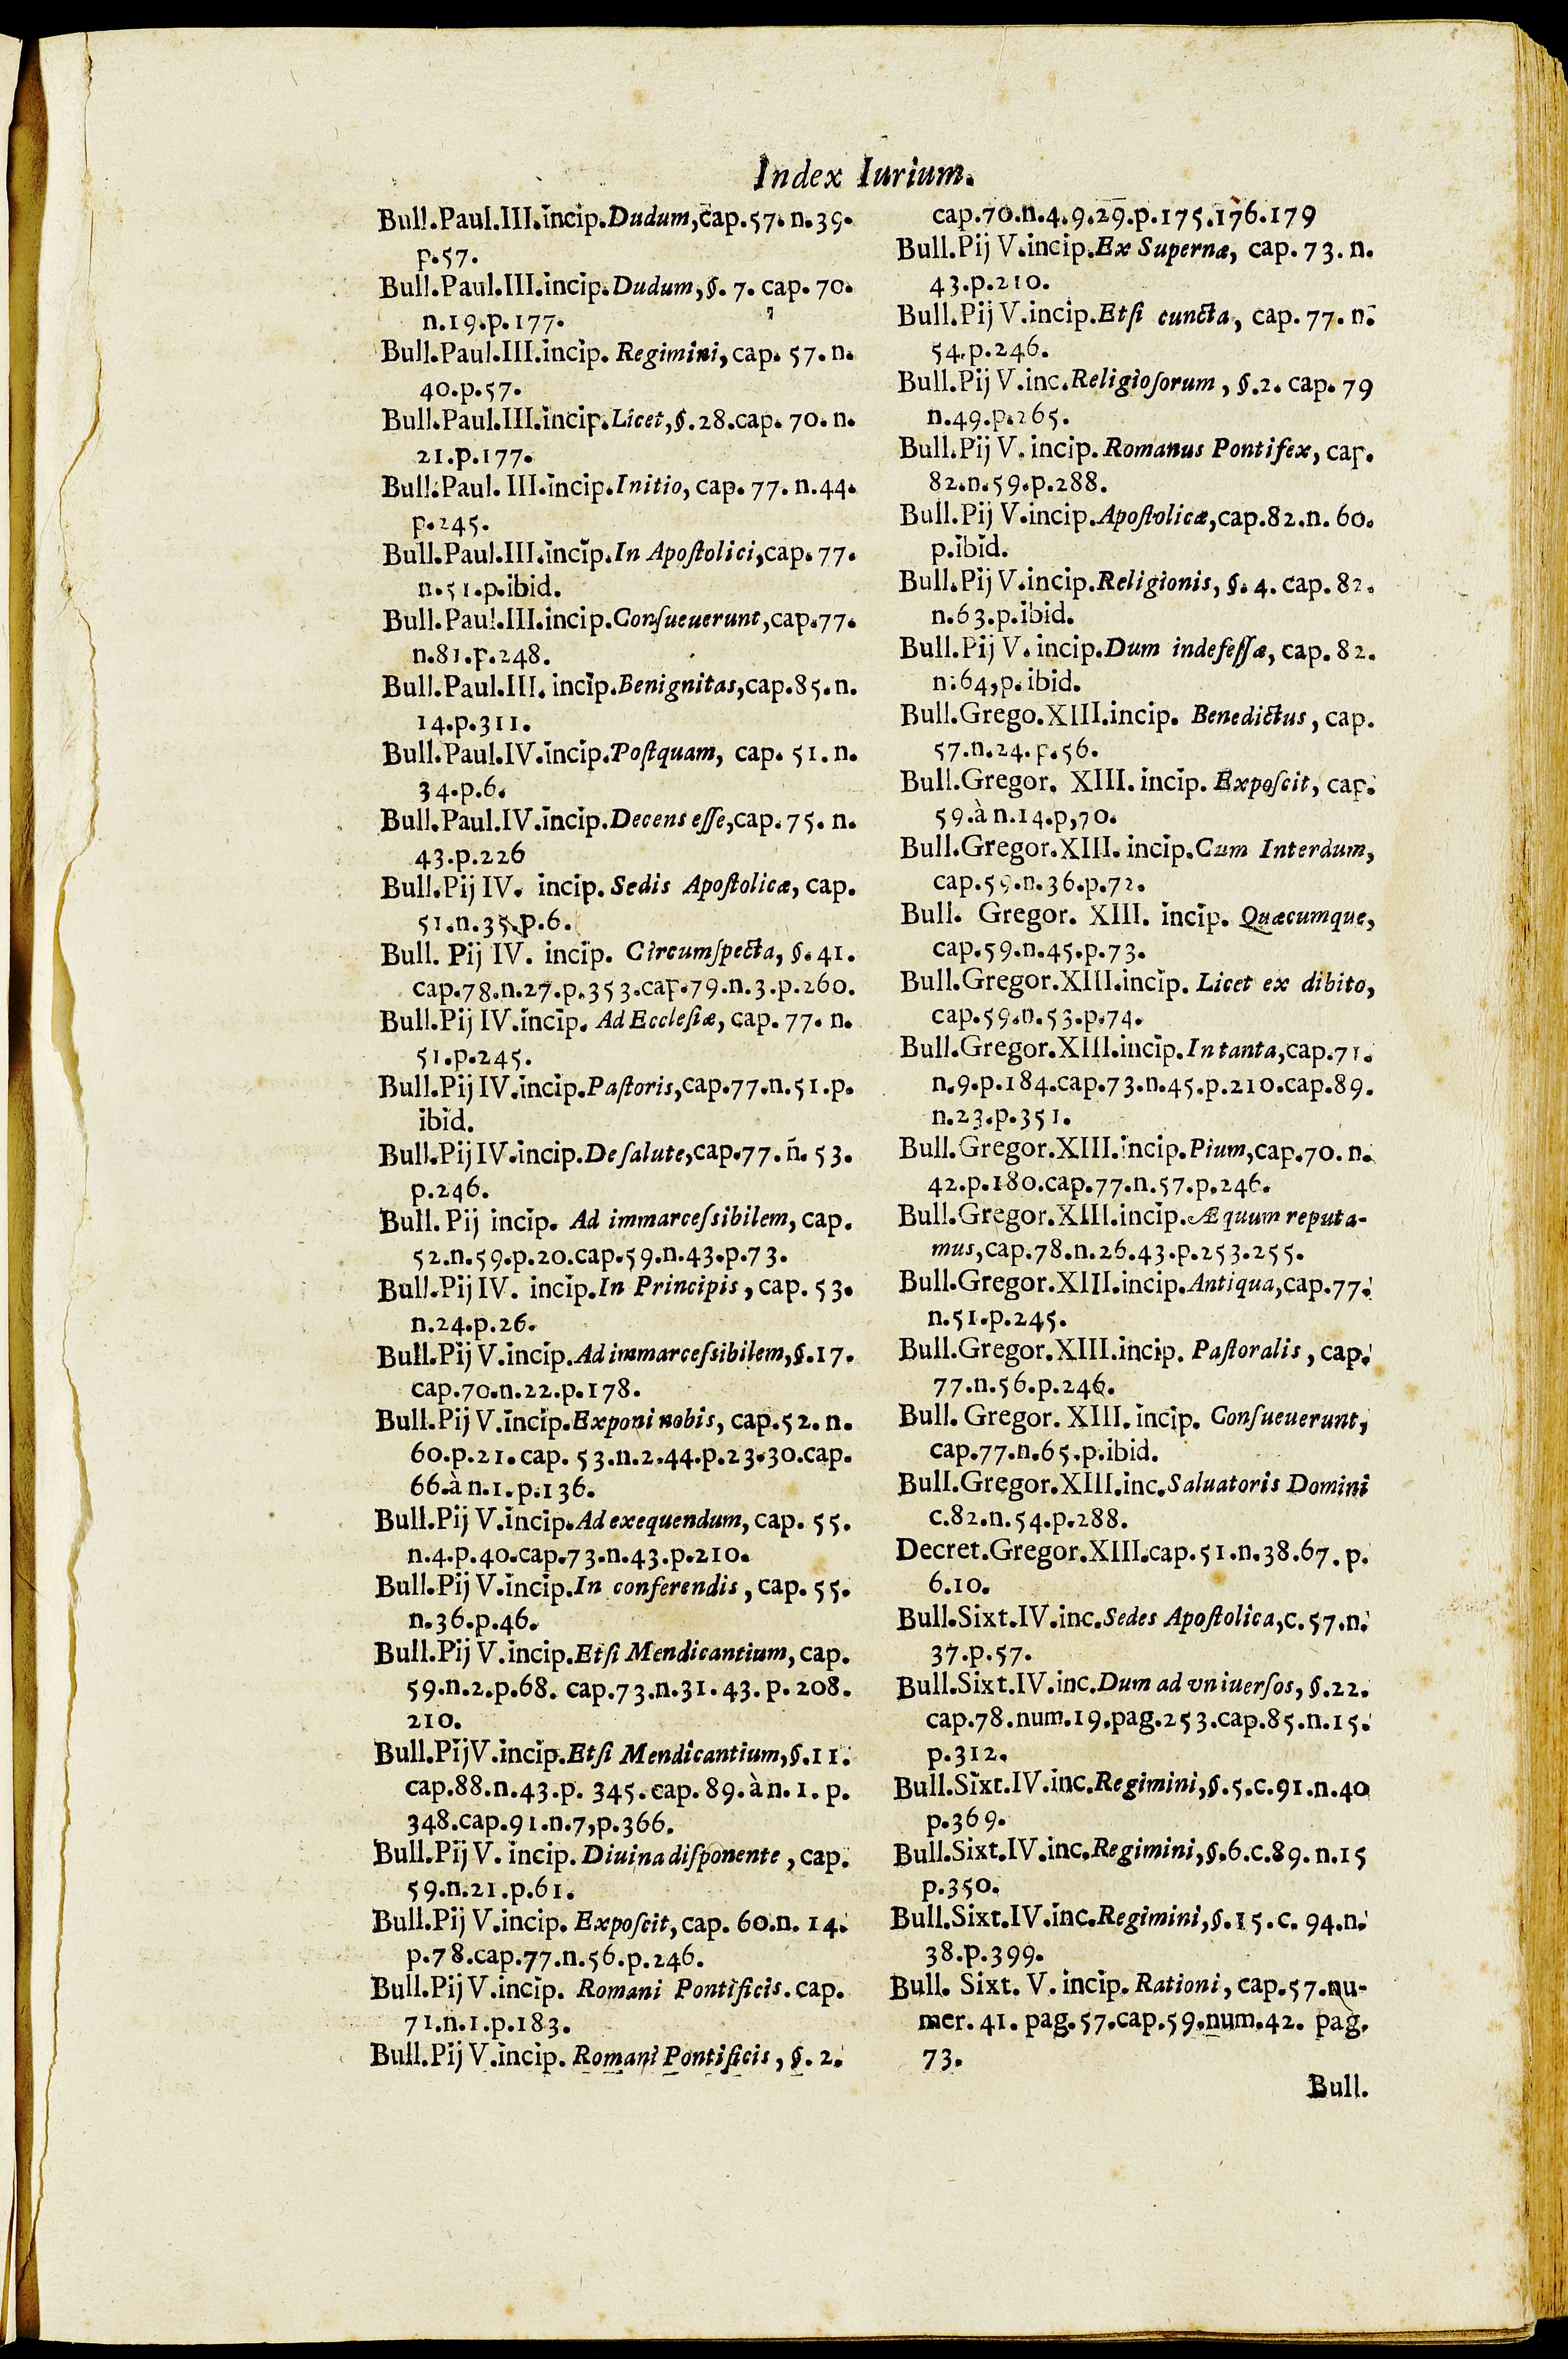 Index Iurium.
Bull.Paul.III.incip.Dudum,cap.57.n.39.
p.57.
Bull.Paul.III.incip.Dudum,§.7.cap.70.
n.19.p.177.
Bull.Paul.III.incip. Regimini,cap.57.n.
40.p.57.
Bull.Paul.III.incip.Licet,§.28.cap.70.n.
21.p.177.
Bull.Paul. III.incip.Initio, cap.77.n.44.
p.245.
Bull.Paul.III.incip.In Apoſtolici,cap.77.
n.51.p.ibid.
Bull.Paul.III.incip.Conſueuerunt,cap.77.
n.81.p.248.
Bull.Paul.III. incip.Benignitas,cap.85.n.
14.p.311.
Bull.Paul.IV.incip.Poſtquam, cap. 51.n.
34.p.6.
Bull.Paul.IV.incip.Decens eſſe,cap.75.n.
43.p.226
Bull.Pij IV. incip. Sedis Apoſtolicæ, cap.
51.n.35.p.6.
Bull. Pij IV. incip. Circumſpecta, §.41.
cap.78.n.27.p.353.cap.79.n.3.p.260.
Bull.Pij IV.incip. Ad Eccleſiæ, cap.77.n.
51.p.245.
Bull.Pij IV.incip.Paſtoris,cap.77.n.51.p.
ibid.
Bull.Pij IV.incip.De ſalute,cap.77.n̄.53.
p.246.
Bull. Pij incip. Ad immarceſsibilem, cap.
52.n.59.p.20.cap.59.n.43.p.73.
Bull.Pij IV. incip.In Principis, cap. 53.
n.24.p.26.
Bull.Pij V.incip.Ad immarceſsibilem,§.17.
cap.70.n.22.p.178.
Bull.Pij V.incip.Exponi nobis, cap.52.n.
60.p.21.cap. 53.n.2.44.p.23.30.cap.
66.à n.1.p.136.
Bull.Pij V.incip.Ad exequendum, cap. 55.
n.4.p.40.cap.73.n.43.p.210.
Bull.Pij V.incip.In conferendis, cap. 55.
n.36.p.46.
Bull.Pij V.incip.Etſi Mendicantium, cap.
59.n.2.p.68. cap.73.n.31.43. p. 208.
210.
Bull.PijV.incip.Etſi Mendicantium,§.11.
cap.88.n.43.p. 345.cap. 89.à n.1. p.
348.cap.91.n.7,p.366.
Bull.Pij V. incip. Diuina diſponente, cap.
59.n.21.p.61.
Bull.Pij V.incip. Expoſcit, cap. 60.n. 14.
p.78.cap.77.n.56.p.246.
Bull.Pij V.incip. Romani Pontificis. cap.
71.n.1.p.183.
Bull.Pij V.incip. Romani Pontificis, §. 2.
cap.70.n.4.9.29.p.175.176.179
Bull.Pij V.incip.Ex Supernæ, cap. 73. n.
43.p.210.
Bull.Pij V.incip.Etſi cuncta, cap. 77. n.
54.p.246.
Bull.Pij V.inc.Religioſorum, §.2. cap. 79
n.49.p.265.
Bull.Pij V. incip. Romanus Pontifex, cap.
82.n.59.p.288.
Bull.Pij V.incip.Apoſtolicæ,cap.82.n. 60.
p.ibid.
Bull.Pij V.incip.Religionis, §. 4. cap. 82.
n.63.p.ibid.
Bull.Pij V. incip.Dum indefeſſæ, cap. 82.
n.64,p.ibid.
Bull.Grego.XIII.incip. Benedictus, cap.
57.n.24.p.56.
Bull.Gregor. XIII. incip. Expoſcit, cap.
59.à n.14.p,70.
Bull.Gregor.XIII. incip.Cum Interdum,
cap.59.n.36.p.72.
Bull. Gregor. XIII. incip. Quæcumque,
cap.59.n.45.p.73.
Bull.Gregor.XIII.incip. Licet ex dibito,
cap.59.n.53.p.74.
Bull.Gregor.XIII.incip.In tanta,cap.71.
n.9.p.184.cap.73.n.45.p.210.cap.89.
n.23.p.351.
Bull.Gregor.XIII.incip.Pium,cap.70.n.
42.p.180.cap.77.n.57.p.246.
Bull.Gregor.XIII.incip.Æquum reputa-
mus,cap.78.n.26.43.p.253.255.
Bull.Gregor.XIII.incip.Antiqua,cap.77.
n.51.p.245.
Bull.Gregor.XIII.incip. Paſtoralis, cap.
77.n.56.p.246.
Bull. Gregor. XIII. incip. Conſueuerunt,
cap.77.n.65.p.ibid.
Bull.Gregor.XIII.inc.Saluatoris Domini
c.82.n.54.p.288.
Decret.Gregor.XIII.cap.51.n.38.67. p.
6.10.
Bull.Sixt.IV.inc.Sedes Apoſtolica,c.57.n.
37.p.57.
Bull.Sixt.IV.inc.Dum ad vniuerſos, §.22.
cap.78.num.19.pag.253.cap.85.n.15.
p.312.
Bull.Sixt.IV.inc.Regimini,§.5.c.91.n.40
p.369.
Bull.Sixt.IV.inc.Regimini,§.6.c.89.n.15
p.350.
Bull.Sixt.IV.inc.Regimini,§.15.c. 94.n.
38.p.399.
Bull. Sixt. V. incip. Rationi, cap.57.nu-
mer. 41. pag.57.cap.59.num.42. pag.
73.
Bull.